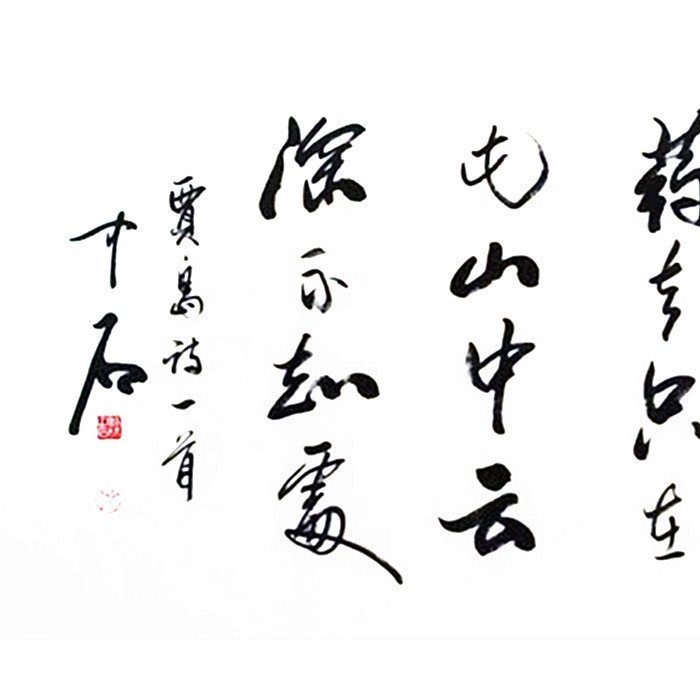 药去只在
此山中云
深不知處
賈島诗一首
中石